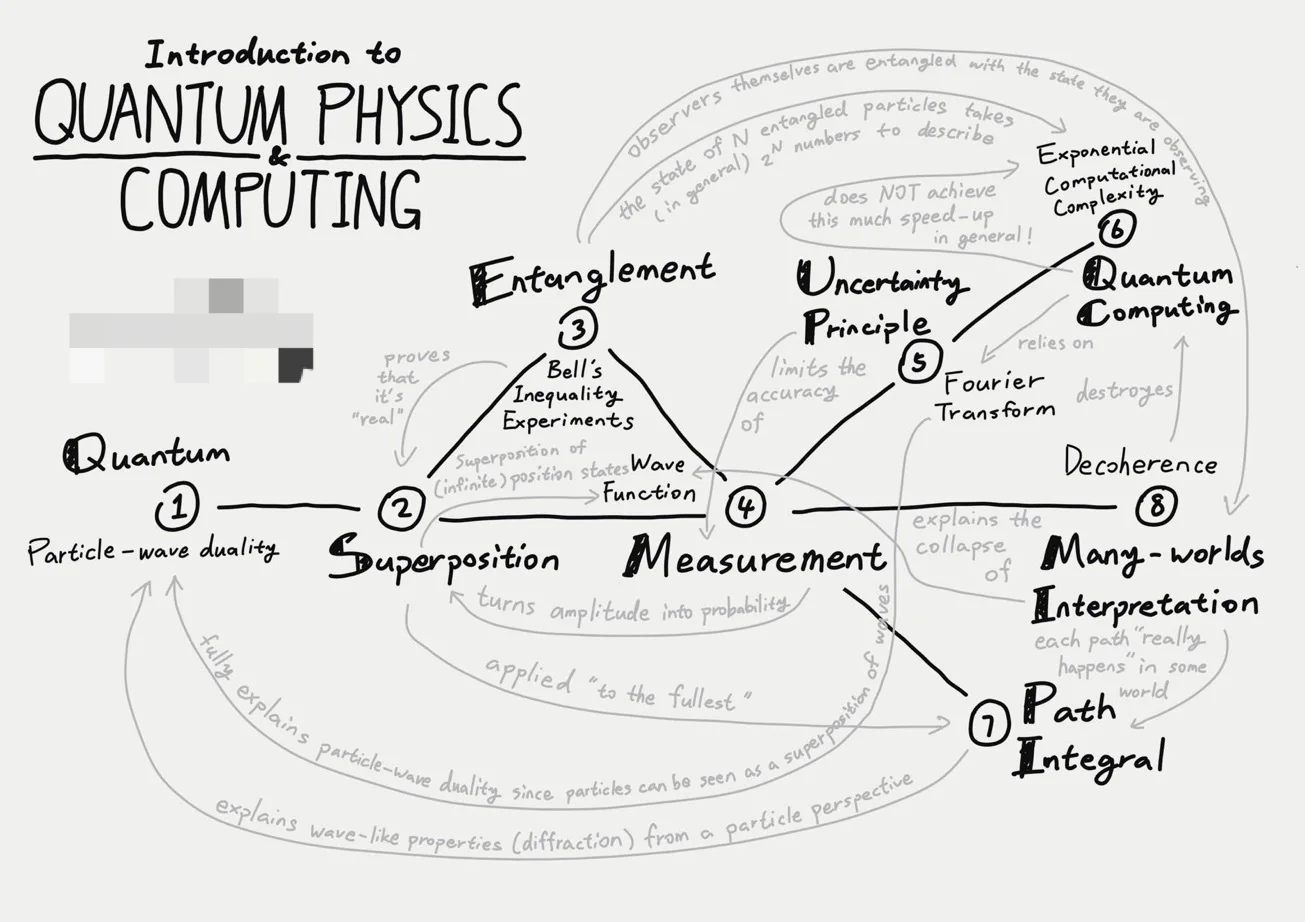 Introduction to
QUANTUM PHYSICS
&
COMPUTING
Observers themselves are entangled with the state they are observing
the state of N entangled particles takes
(in general) 2^N numbers to describe
Exponential
Computational
Complexity
6
does NOT achieve
this much speed-up
in general!
Quantum
Computing
Entanglement
3
Bell's
Inequality
Experiments
proves
that
it's
"real"
Uncertainty
Principle
5
Fourier
Transform
limits the
accuracy
of
relies on
destroyes
Quantum
1
Particle-wave duality
2
Superposition
Superposition of
(infinite) position states
Wave
Function
4
Measurement
Decoherence
8
Many-worlds
Interpretation
explains the
collapse
of
turns amplitude into probability
applied "to the fullest"
each path "really
happens" in some
world
7
Path
Integral
fully explains particle-wave duality since particles can be seen as a superposition of waves
explains wave-like properties (diffraction) from a particle perspective